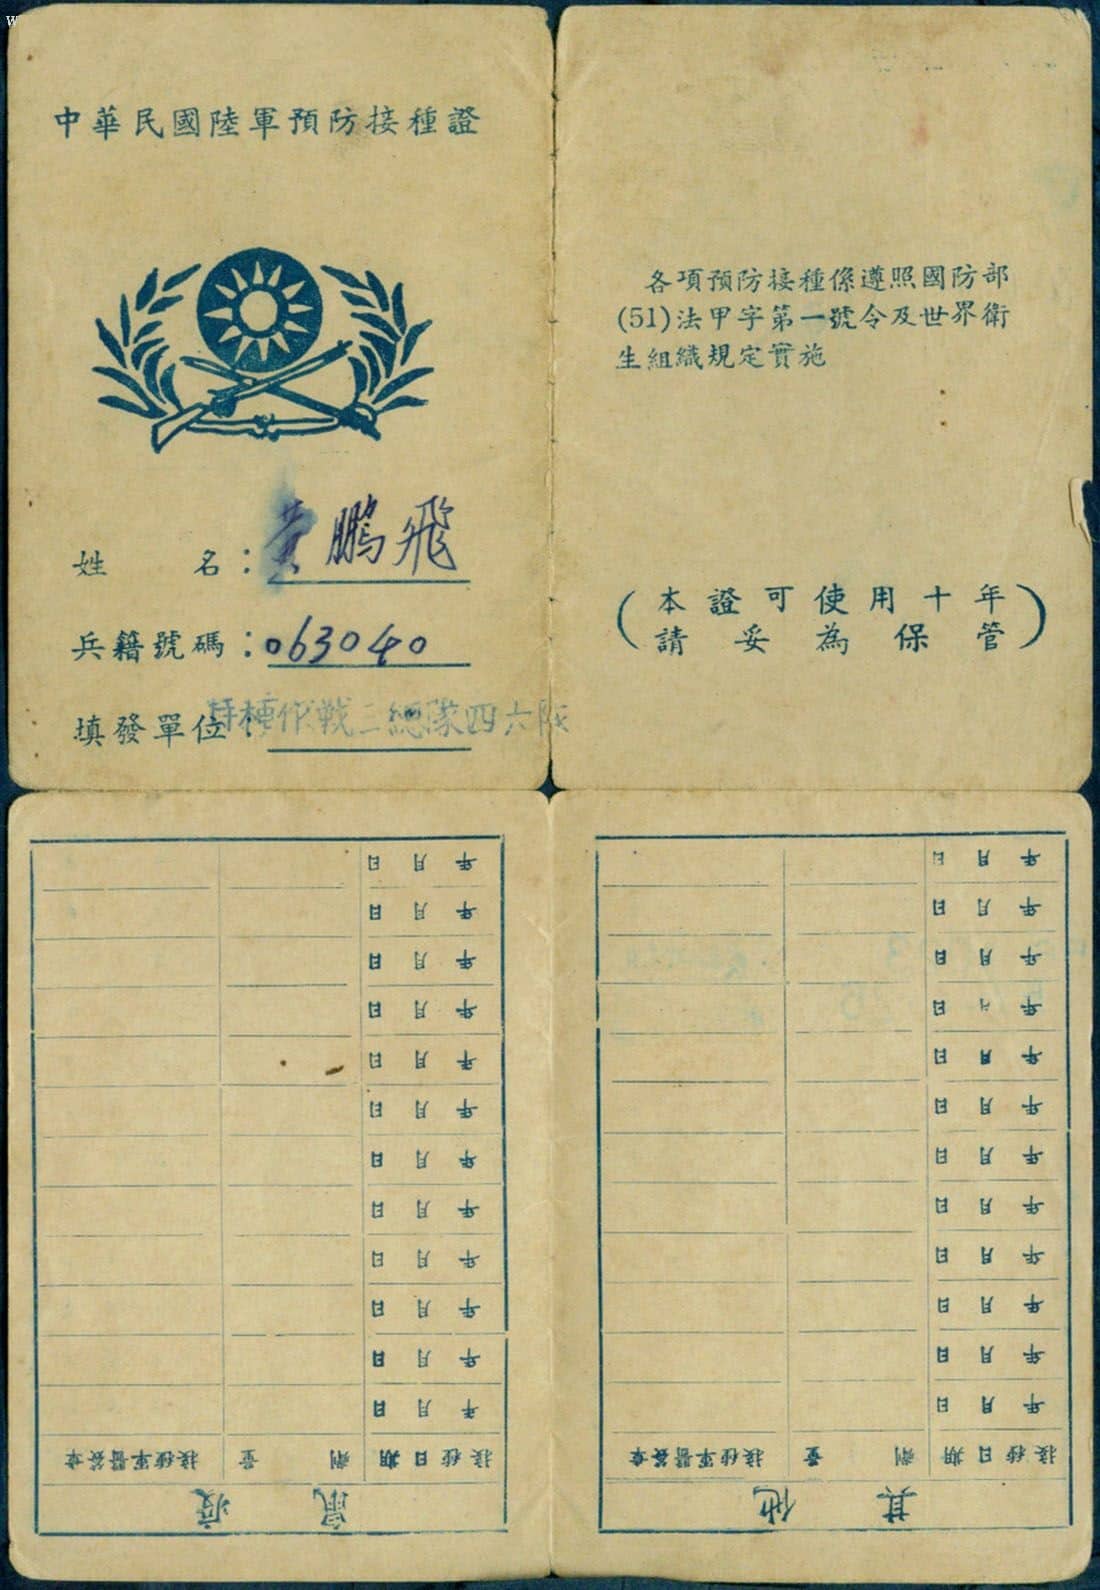 中華民國陸軍預防接種證
姓名：黃鵬飛
兵籍號碼：063040
填發單位：特種作戰二總隊四六隊
各項預防接種係遵照國防部
(51)法甲字第一號令及世界衛
生組織規定實施
（本證可使用十年
請妥為保管）
鼠疫
接種日期 劑量 接種軍醫簽章
年月日
年月日
年月日
年月日
年月日
年月日
年月日
年月日
年月日
年月日
年月日
年月日
其他
接種日期 劑量 接種軍醫簽章
年月日
年月日
年月日
年月日
年月日
年月日
年月日
年月日
年月日
年月日
年月日
年月日